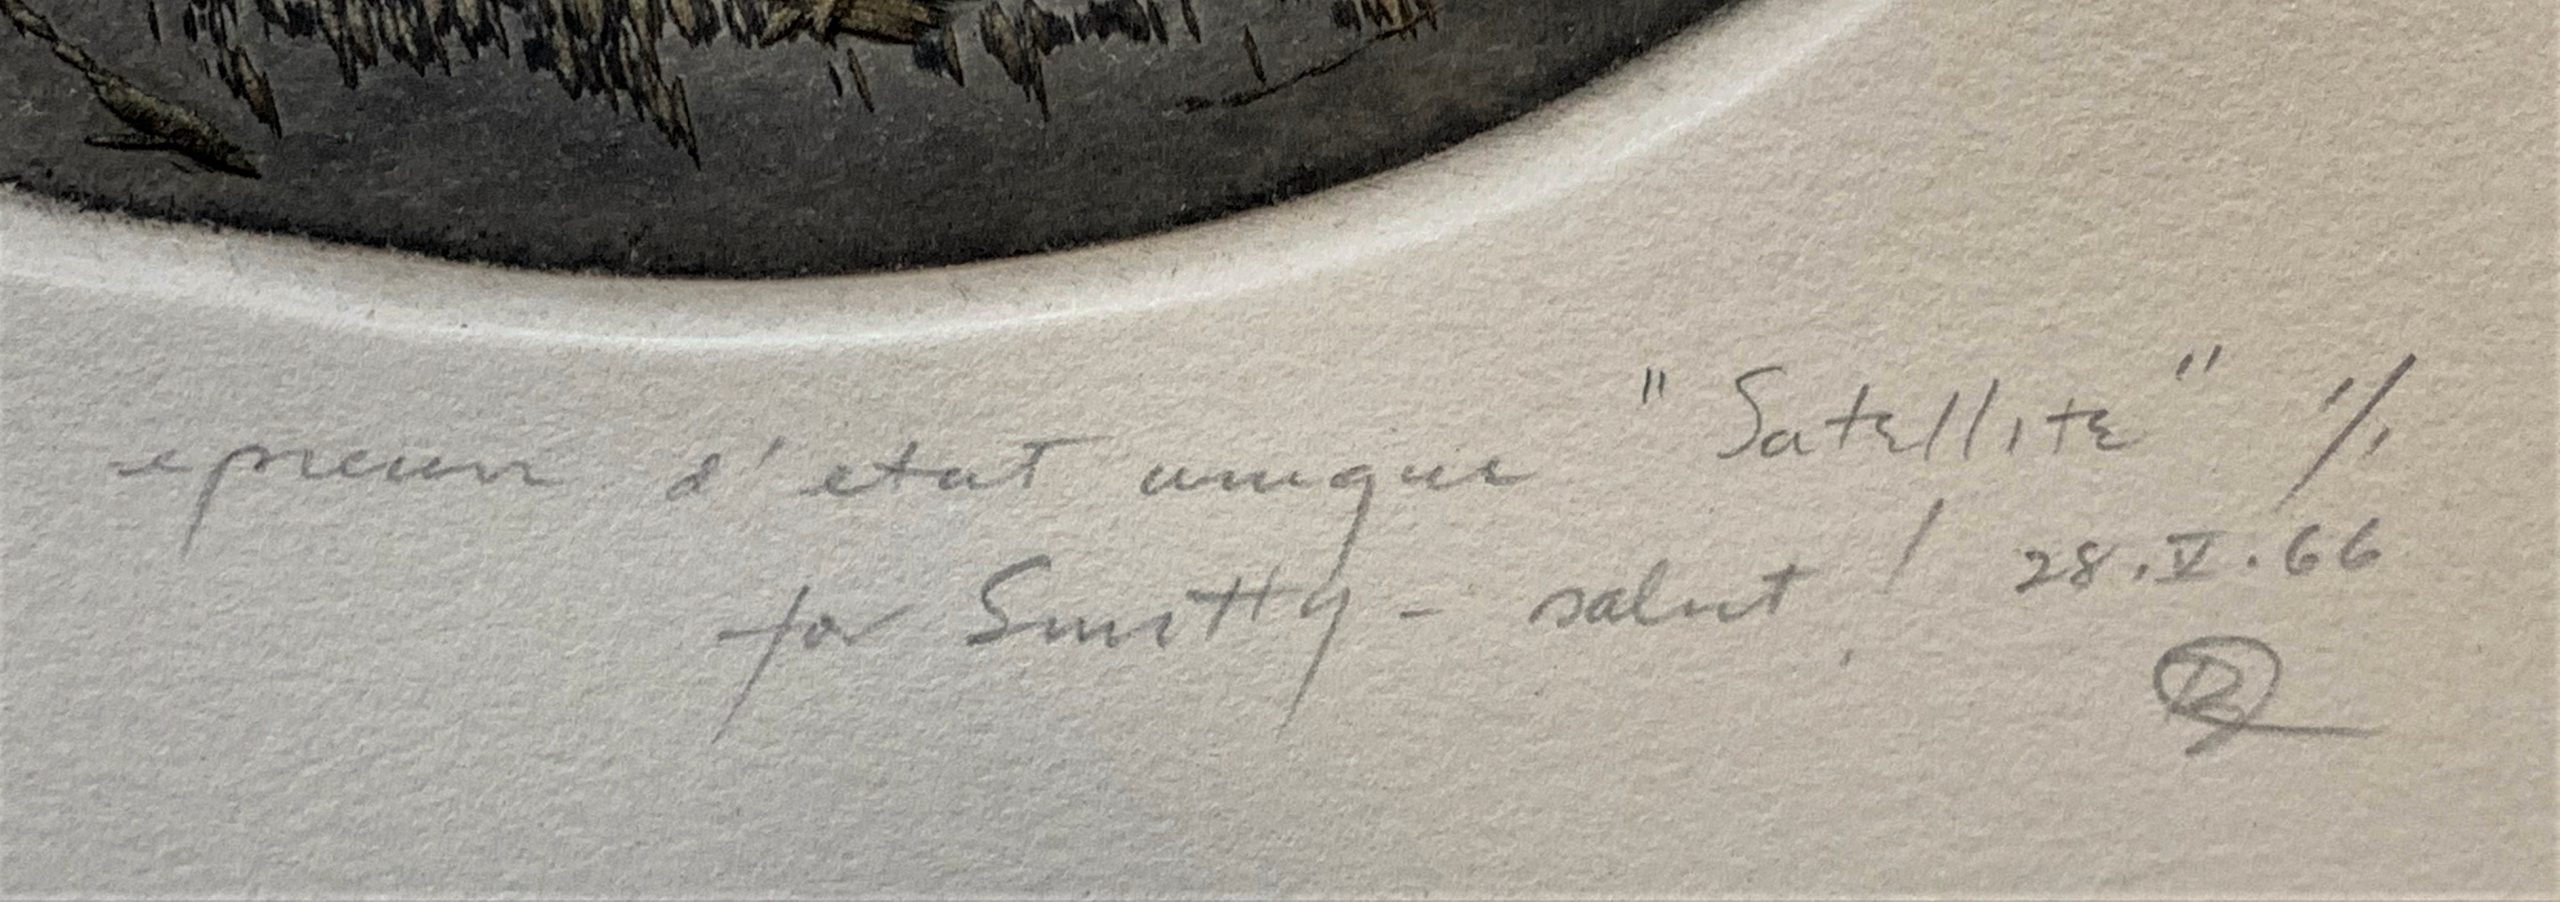 epreuve d'etat unique "Satellite" 1/1
for Smitty - salut! 28.V.66